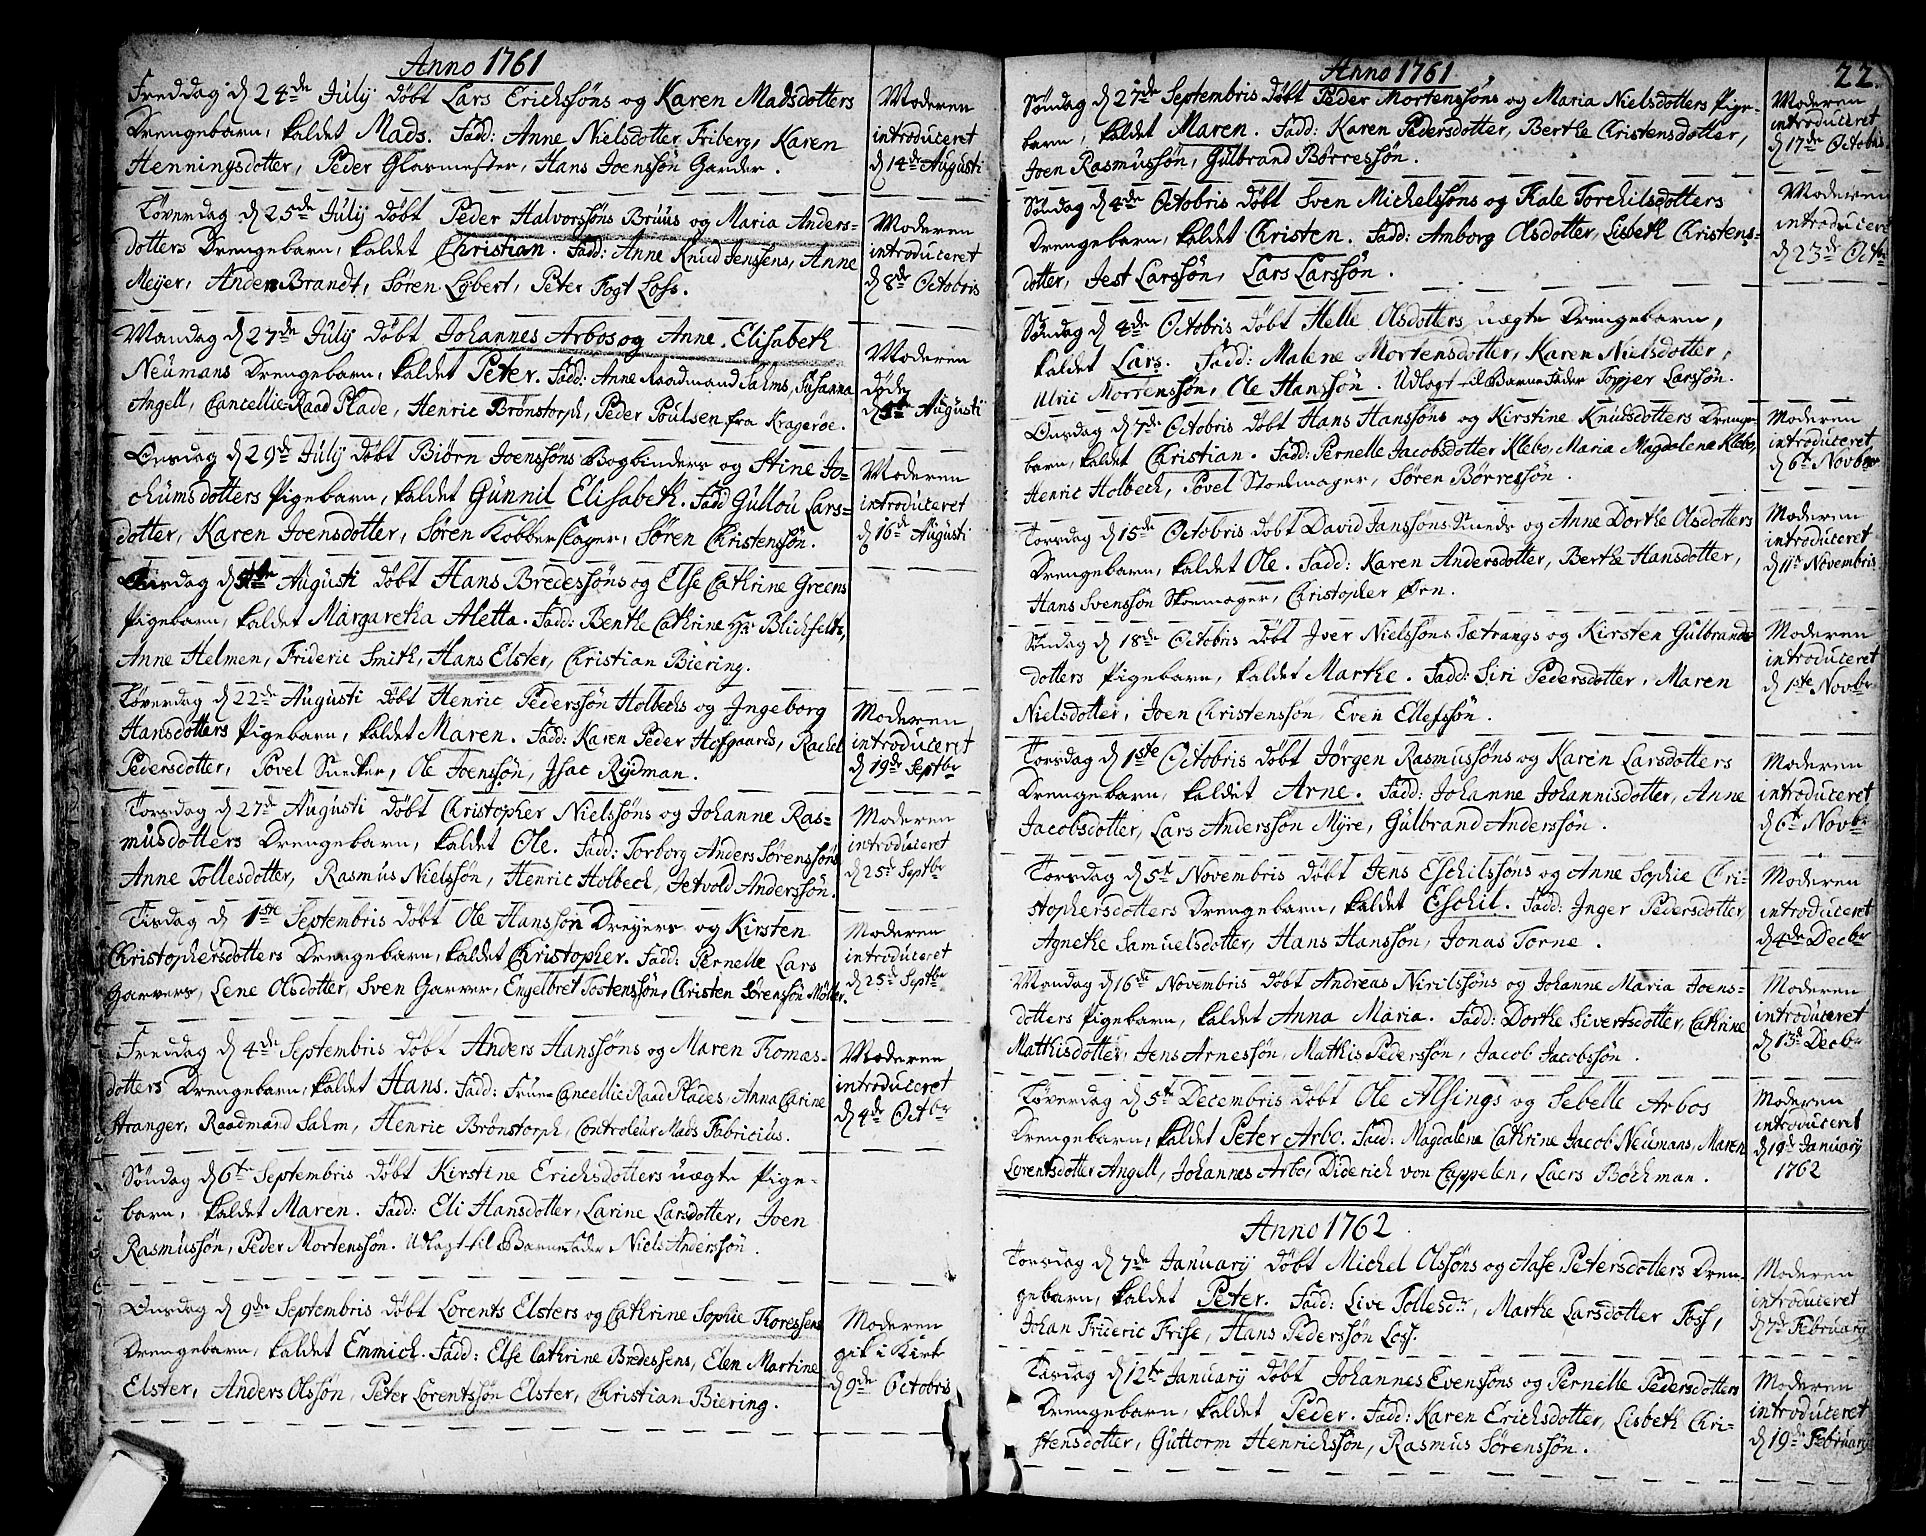 Anno 1761
Freddag d 24de July döbt Lars Erichssöns og Karen Madsdotters
Drengebarn, kaldet Mads. Fadd: Anne Nielsdotter Friberg, Karen
Henningsdotter, Peder Glasmester, Hans Joenssön Garder.
Moderen
introduceret
d 14de Augusti
Löverdag d 25de July döbt Peder Halvorssöns Bruus og Maria Anders-
dotters Drengebarn, kaldet Christian. Fadd: Anne Knud Jenssens, Anne
Meyer, Anders Brandt, Sören Egbert, Peter Fogt Loss.
Moderen
introduceret
d 8de Octobris
Mandag d 27de July döbt Johannes Arbos og Anne Elisabeth
Neumans Drengebarn, kaldet Peter. Fadd: Anne Raadmand Salms, Susanna
Angell, Cancellie-Raad Plade, Henric Brönstorph, Peder Poulsen fra Krageröe.
Moderen
döde
Augusti
Onsdag d 29de July döbt Biörn Joenssöns Bogbinders og Stine Jo-
chumsdotters Pigebarn, kaldet Gunnil Elisabeth. Fadd Gullou Lars-
dotter, Karen Joensdotter, Sören Kobberslager, Sören Christenssön.
Moderen
introduceret
d 16de Augusti
Augusti döbt Hans Bredessöns og Else Cathrine Greens
Pigebarn, kaldet Margaretha Aletta. Fadd: Benthe Cathrine Hr Blichfeldts,
Anne Helmen, Frideric Smith, Hans Elster, Christian Biering.
Löverdag d 22de Augusti döbt Henric Pederssön Holbechs og Ingeborg
Hansdotters Pigebarn, kaldet Maren. Fadd: Karen Peder Hofgaards, Rachel
Pedersdotter, Povel Snecker, Ole Joenssön, Isac Rydman.
Moderen
introduceret
d 19de Septbr
Torsdag d 27de Augusti döbt Christopher Nielssöns og Johanne Ras-
musdotters Drengebarn, kaldet Ole. Fadd: Torborg Anders Sörenssöns
Anne Tollesdotter, Rasmus Nielssön, Henric Holbech, Jetvold Anderssön.
Moderen
introduceret
d 25de Septbr
Tisdag d 1ste Septembris döbt Ole Hanssön Dreyers og Kirsten
Christophersdotters Drengebarn, kaldet Christopher. Fadd: Pernelle Lars
Garvers, Lene Olsdotter, Sven Garver, Engelbret Tostenssön, Christen Sörenssön Möller.
Moderen
introduceret
d 25de Septbr
Fredag d 4de Septembris döbt Anders Hanssöns og Maren Thomas-
dotters Drengebarn, kaldet Hans. Fadd: Frue Cancellie Raad Plades, Anna Carine
Stranger, Raadmand Salm, Henric Brönstorph, Controleur Mads Fabricius.
Moderen
introduceret
d 4de Octbr
Söndag d 6te Septembris döbt Kirstine Erichsdotters uægte Pige-
barn, kaldet Maren. Fadd: Eli Hansdotter, Carine Larsdotter, Joen
Rasmussön, Peder Mortenssön. Udlagt til Barnefader Niels Anderssön.
Onsdag d 9de Septembris döbt Lorents Elsters og Cathrine Sophie Thoressens
Drengebarn, kaldet Emmich. Fadd: Else Cathrine Bredessens, Elen Martine
Elster, Anders Olssön, Peter Lorentssön Elster, Christian Biering.
Moderen
gik i Kirke
d 9de Octobris
Anno 1761
22.
Söndag d 27de Septembris döbt Peder Mortenssöns og Maria Nielsdotters Pige-
barn, kaldet Maren. Fadd: Karen Pedersdotter, Berthe Christensdotter,
Joen Rasmussön, Gulbrand Börressön.
Moderen
introduceret
d 17de Octobris
Söndag d 4de Octobris döbt Sven Michelssöns og Kale Torchilsdotters
Drengebarn, kaldet Christen. Fadd: Anborg Olsdotter, Lisbeth Christens-
dotter, Jest Larssön, Lars Larssön.
Moderen
introduceret
d 23de Octbr
Söndag d 4de Octobris döbt Helle Olsdotters uægte Drengebarn,
kaldet Lars. Fadd: Malene Mortensdotter, Karen Nielsdotter,
Ulric Mortenssön, Ole Hanssön. Udlagt til Barnefader Topjer Larssön.
Onsdag d 7de Octobris döbt Hans Hanssöns og Kirstine Knudsdotters Drenge-
barn, kaldet Christian. Fadd: Pernelle Jacobsdotter Klebo, Maria Magdalene Klebo,
Henric Holbech, Povel Stoelmager, Sören Börressön.
Moderen
introduceret
d 6te Novbr
Torsdag d 15de Octobris döbt David Janssöns Smeds og Anne Dorthe Olsdotters
Drengebarn, kaldet Ole. Fadd: Karen Andersdotter, Berthe Hansdotter,
Hans Svenssön Skoemager, Christopher Örn.
Moderen
introduceret
d 11te Novembris
Söndag d 18de Octobris döbt Iver Nielssöns Sætrangs og Kirsten Gulbrands-
dotters Pigebarn, kaldet Marthe. Fadd: Siri Pedersdotter, Maren
Nielsdotter, Joen Christenssön, Even Ellefssön.
Moderen
introduceret
d 1ste Novbr
Torsdag d 1ste Octobris döbt Jörgen Rasmussöns og Karen Larsdotters
Drengebarn, kaldet Arne. Fadd: Johanne Johannisdotter, Anne
Jacobsdotter, Lars Anderssön Myre, Gulbrand Anderssön.
Moderen
introduceret
d 6te Novbr
Torsdag d 5te Novembris döbt Jens Eschilssöns og Anne Sophie Chri-
stophersdotters Drengebarn, kaldet Eschil. Fadd: Inger Pedersdotter,
Agnethe Samuelsdotter, Hans Hanssön, Jonas Torne.
Moderen
introduceret
d 4de Decbr
Mandag d 16de Novembris döbt Andreas Nirilssöns og Johanne Maria Joens-
dotters Pigebarn, kaldet Anna Maria. Fadd: Dorthe Sivertsdotter, Cathrine
Mathisdotter, Jens Arnessön, Mathis Pederssön, Jacob Jacobssön.
Moderen
introduceret
d 13de Decbr
Löverdag d 5te Decembris döbt Ole Alsings og Sebelle Arbos
Drengebarn, kaldet Peter Arbo. Fadd: Magdalene Cathrine Jacob Neumans, Maren
Lorentsdotter Angell, Johannes Arbo, Diderich von Cappelen, Laers Böchman.
Moderen
introduceret
d 19de January
1762
Anno 1762
Torsdag d 7de January döbt Michel Olssöns og Aase Petersdotters Dren-
gebarn, kaldet Peter. Fadd: Live Tollesdr, Marthe Larsdotter Foss,
Johan Frideric Frise, Hans Pederssön Loss.
Moderen
introduceret
d 7de February
Tisdag d 12te January döbt Johannes Evenssöns og Pernelle Pedersdotters
Drengebarn, kaldet Peder. Fadd: Karen Erichsdotter, Lisbeth Chri-
stensdotter, Guttorm Henrichssön, Rasmus Sörenssön.
Moderen
introduceret
d 19de February